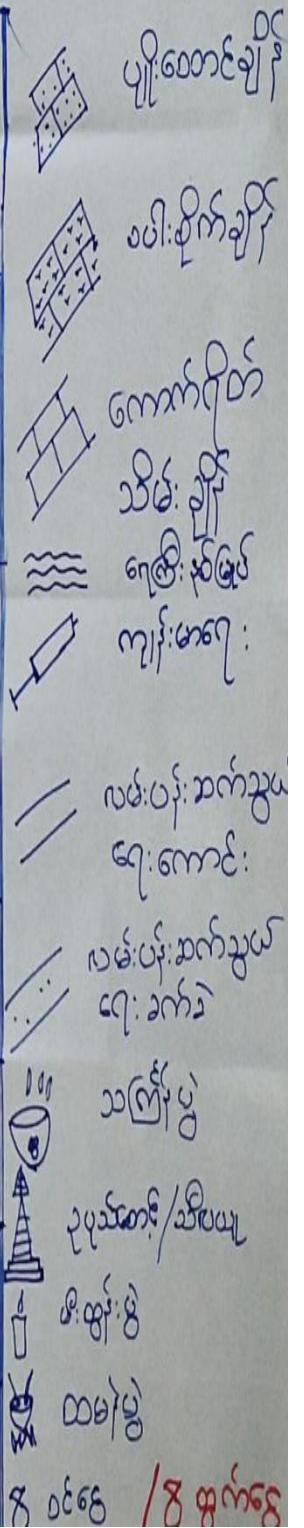 ပျိုးထောင်ချိန်
စပါးစိုက်ချိန်
ကောက်ရိတ်
သိမ်းချိန်
ရေကြီးနစ်မြုပ်
ကျန်းမာရေး
လမ်းပန်းဆက်သွယ်
ရေးကောင်း
လမ်းပန်းဆက်သွယ်
ရေးခက်ခဲ
သင်္ကြန်ပွဲ
ဥပုသ်စောင့်/သီလယူ
မီးထွန်းပွဲ
ထမနဲပွဲ
ဝင်ငွေ / ထွက်ငွေ